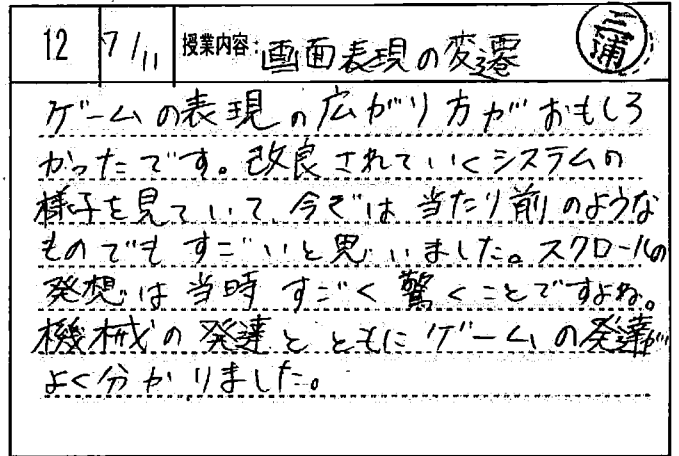 12 7/11 授業内容: 画面表現の変遷 三浦
ゲームの表現の広がり方がおもしろ
かったです。改良されていくシステムの
様子を見ていて、今では当たり前のような
ものでもすごいと思いました。スクロールの
発想は当時すごく驚くことですよね。
機械の発達とともにゲームの発達が
よく分かりました。